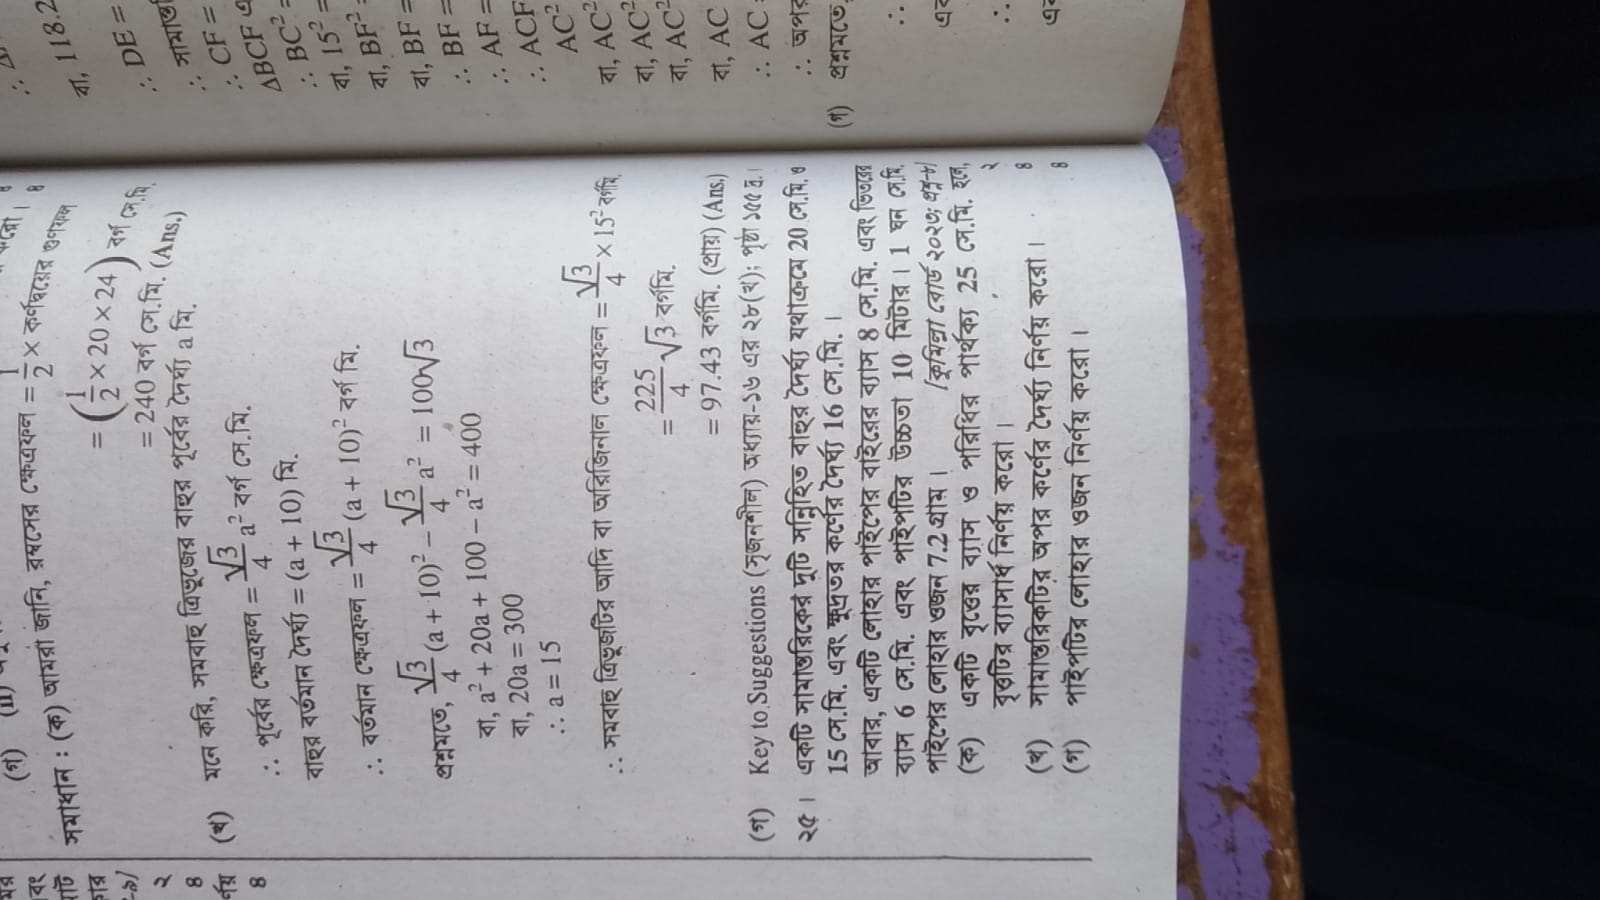 (গ) (ii)
সমাধান : (ক) আমরা জানি, রম্বসের ক্ষেত্রফল = 1/2 × কর্ণদ্বয়ের গুণফল
= (1/2 × 20 × 24) বর্গ সে.মি.
= 240 বর্গ সে.মি. (Ans.)
(খ) মনে করি, সমবাহু ত্রিভুজের বাহুর পূর্বের দৈর্ঘ্য a মি.
∴ পূর্বের ক্ষেত্রফল = √3/4 a² বর্গ সে.মি.
বাহুর বর্তমান দৈর্ঘ্য = (a + 10) মি.
∴ বর্তমান ক্ষেত্রফল = √3/4 (a + 10)² বর্গ মি.
প্রশ্নমতে, √3/4 (a + 10)² − √3/4 a² = 100√3
বা, a² + 20a + 100 − a² = 400
বা, 20a = 300
∴ a = 15
∴ সমবাহু ত্রিভুজটির আদি বা অরিজিনাল ক্ষেত্রফল = √3/4 × 15² বর্গমি.
= 225/4 √3 বর্গমি.
= 97.43 বর্গমি. (প্রায়) (Ans.)
(গ) Key to Suggestions (সৃজনশীল) অধ্যায়-১৬ এর ২৮(খ); পৃষ্ঠা ১৫৫ দ্র.।
২৫। একটি সামান্তরিকের দুটি সন্নিহিত বাহুর দৈর্ঘ্য যথাক্রমে 20 সে.মি. ও
15 সে.মি. এবং ক্ষুদ্রতর কর্ণের দৈর্ঘ্য 16 সে.মি.।
আবার, একটি লোহার পাইপের বাইরের ব্যাস 8 সে.মি. এবং ভিতরের
ব্যাস 6 সে.মি. এবং পাইপটির উচ্চতা 10 মিটার। 1 ঘন সে.মি.
পাইপের লোহার ওজন 7.2 গ্রাম। [কুমিল্লা বোর্ড ২০২৩; প্রশ্ন-৮]
(ক) একটি বৃত্তের ব্যাস ও পরিধির পার্থক্য 25 সে.মি. হলে,
বৃত্তটির ব্যাসার্ধ নির্ণয় করো। ২
(খ) সামান্তরিকটির অপর কর্ণের দৈর্ঘ্য নির্ণয় করো। ৪
(গ) পাইপটির লোহার ওজন নির্ণয় করো। ৪
বা, 118.2
∴ DE =
∴ সামান্তরি
∴ CF =
ΔBCF এ
∴ BC² =
বা, 15² =
বা, BF² =
বা, BF =
∴ BF =
∴ AF =
∴ ACF
AC²
বা, AC²
বা, AC²
বা, AC²
বা, AC
∴ AC =
∴ অপর
(গ) প্রশ্নমতে,